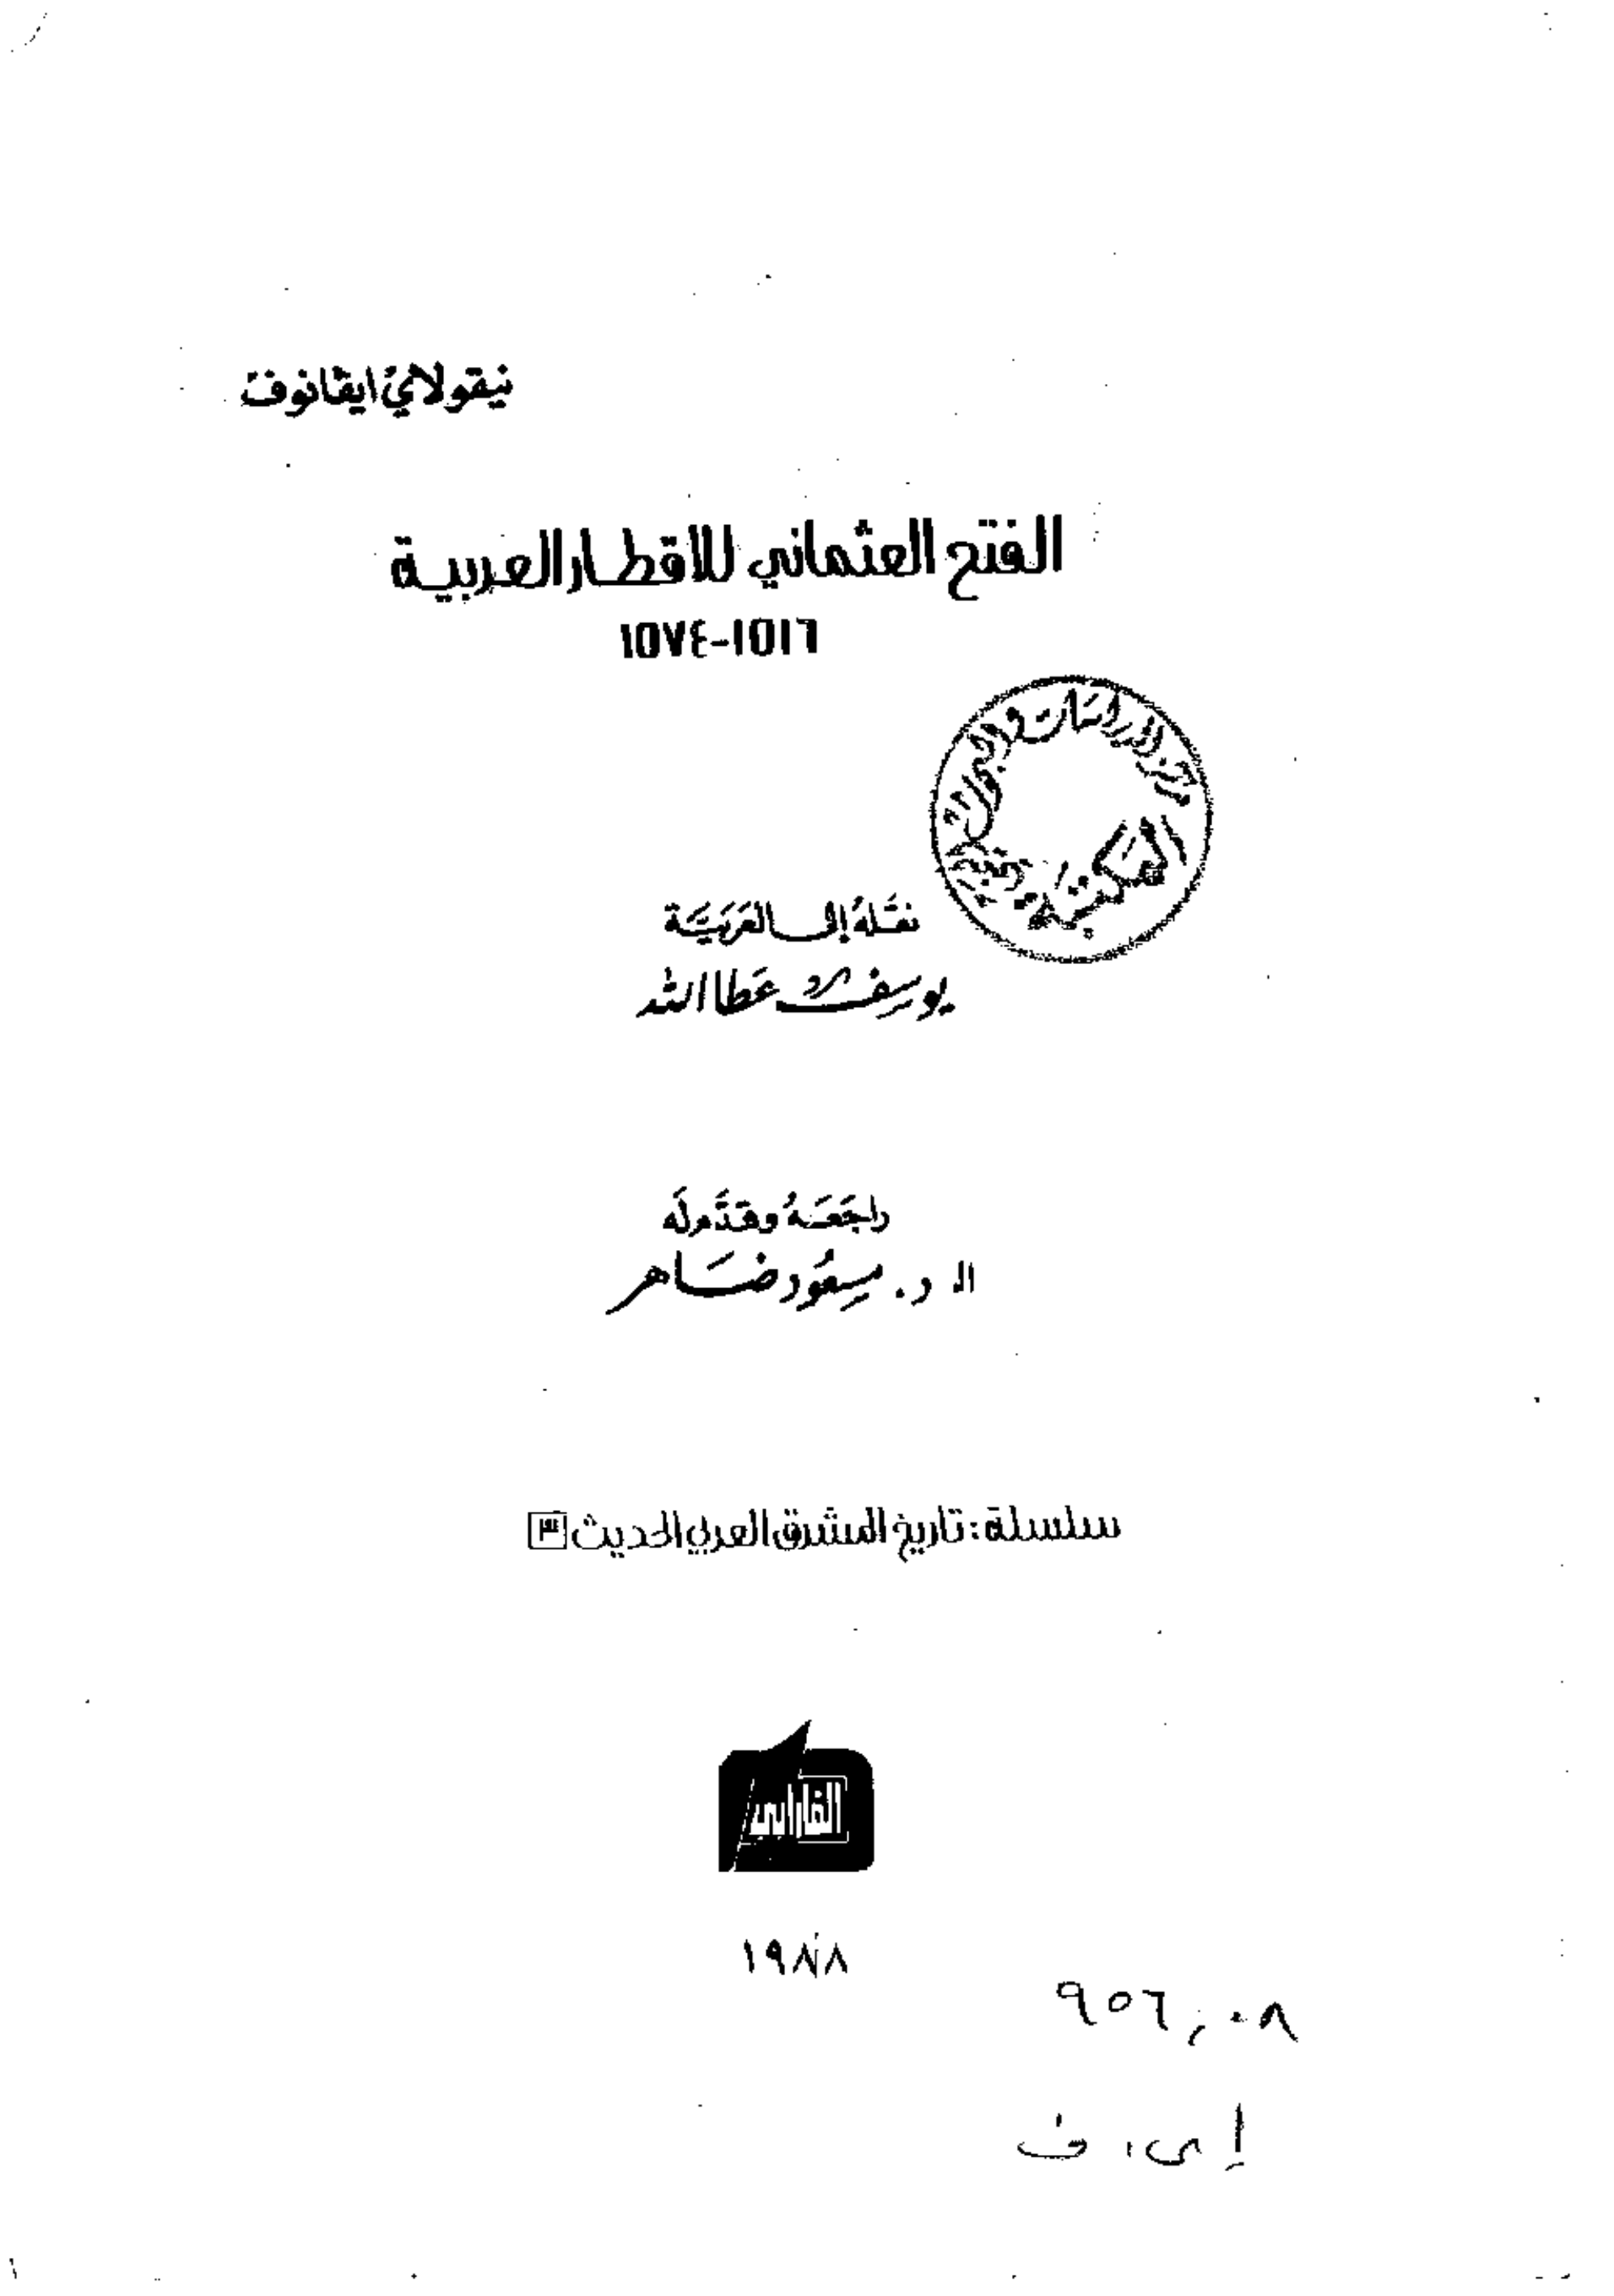 نيقولاي ايڤانوف
الفتح العثماني للاقطار العربية
١٥١٦-١٥٧٤
الدراسات و
نقله إلى العربية
يوسف عطا الله
راجَعَهُ وقدَّم لَه
الـ د. مسعُود ضاهر
سلسلة: تاريخ المشرق العربي الحديث ٣
الفارابي
١٩٨٨
٩٥٦,٠٨
إ ى، ف